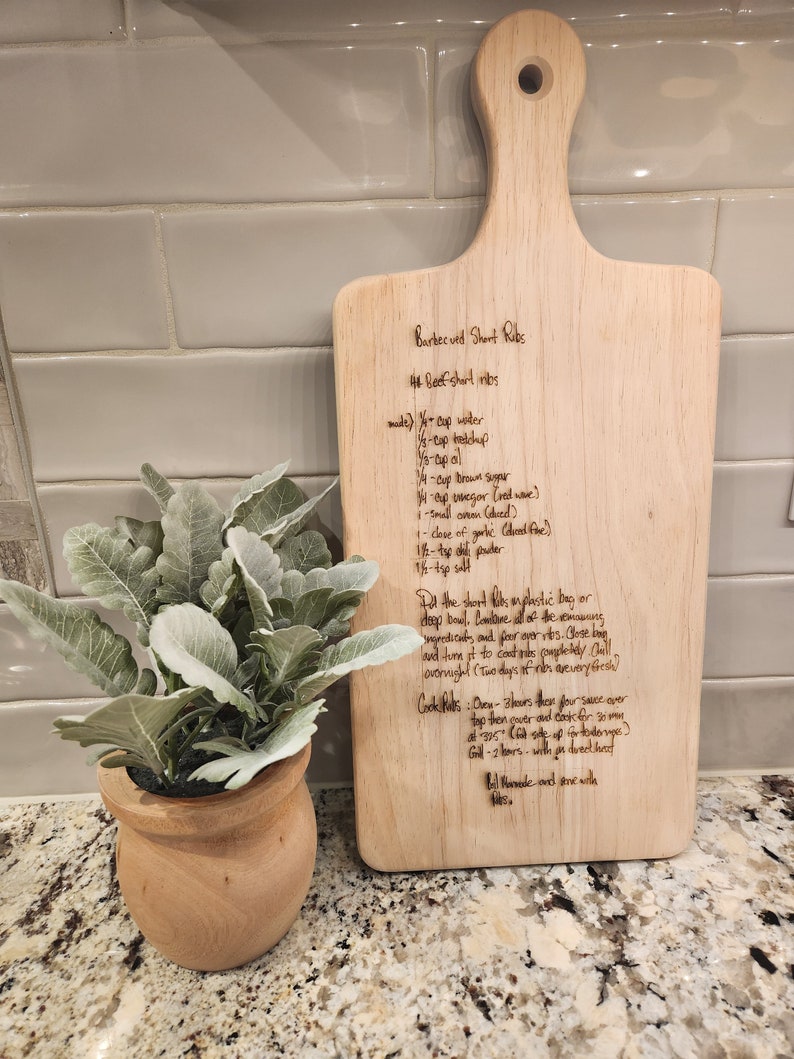 Barbecued Short Ribs
4# Beef short ribs
made) 1/4 - cup water
1/3 - cup ketchup
1/3 - cup oil
1/4 - cup brown sugar
1/4 cup vinegar (red wine)
1 - small onion (diced)
1 - clove of garlic (diced fine)
1 1/2 - tsp chili powder
1/2 - tsp salt
Put the short Ribs in plastic bag or
deep bowl. Combine all of the remaining
ingredients and poor over ribs. Close bag
and turn it to coat ribs completely. Chill
overnight (Two days if ribs are very fresh)
Cook Ribs : Oven - 3 hours then pour sauce over
top then cover and cook for 30 min
at 325° (fat side up for tenderness)
Grill - 2 hours - with in direct heat
Boil Marinade and serve with
Ribs.